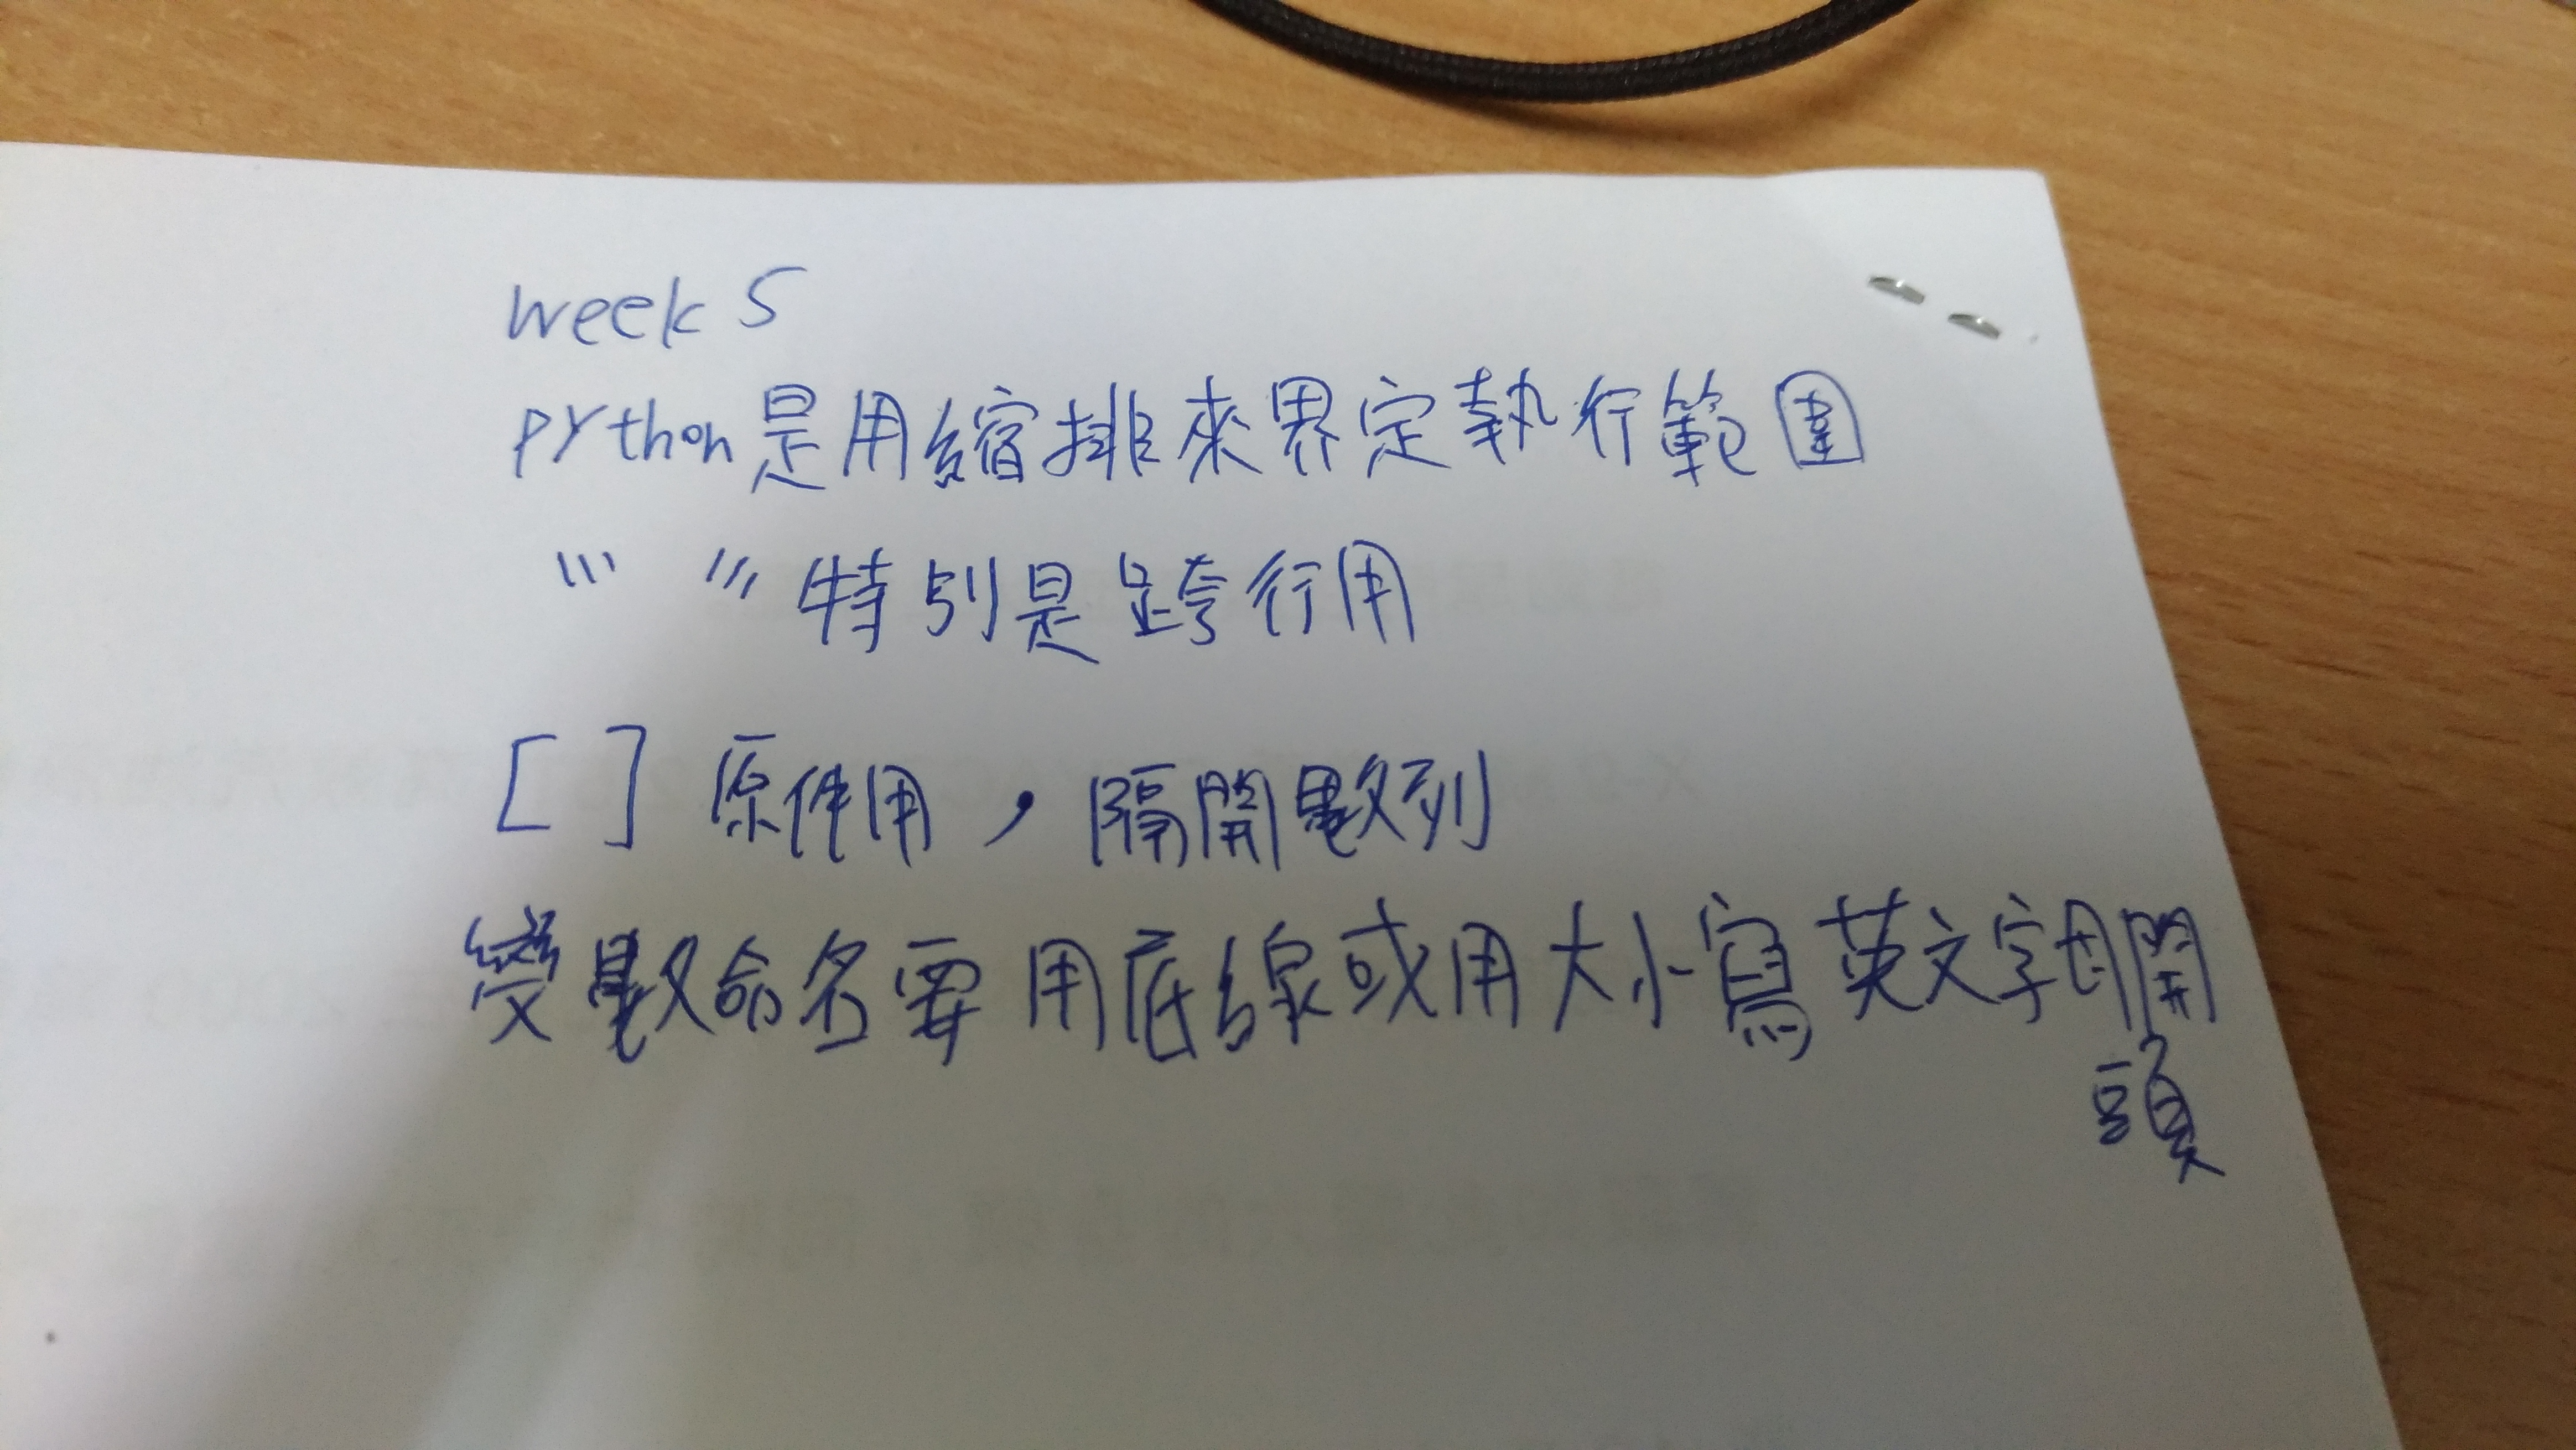 week 5
python是用縮排來界定執行範圍
''' '''特別是跨行用
[ ] 原件用，隔開數列
變數命名要用底線或用大小寫英文字母開
頭